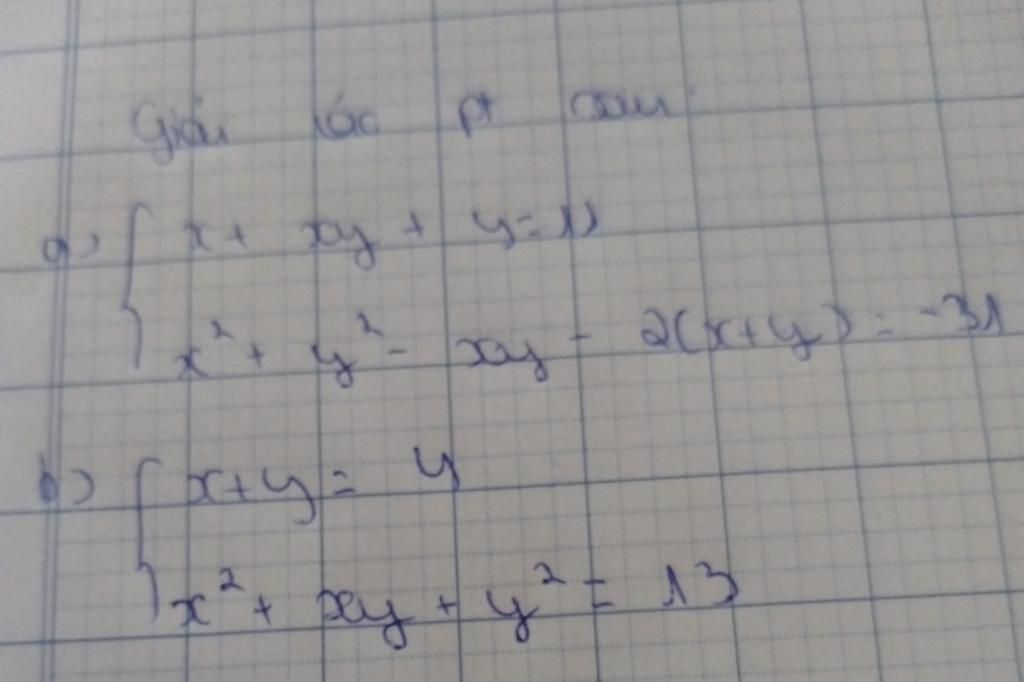 Giải các pt sau
a) { x + xy + y = 11
x² + y² - xy - 2(x+y) = -31
b) { x+y = 4
x² + xy + y² = 13